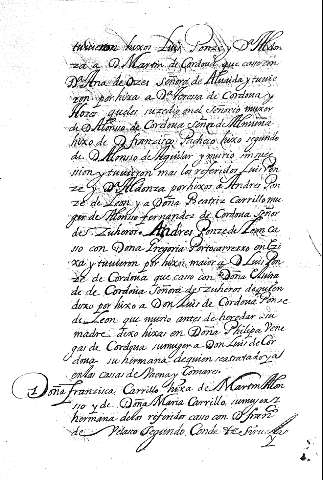 tuvieron hixos Luis Ponze y Dª Aldon
za a D. Martin de Cordoua que caso con
Dª Ana de Ozes Señora de Aluaida y tuvie
ron por hixa a Dª Teresa de Cordoua y
Hozes qual suzedio en el Señorio muxer
de D. Alonso de Cordoua Conde de
hixo de D. Francisco Pacheco hixo segundo
de D. Alonso de Aguilar y murio sin suze
sion y tuvieron mas los referidos Luis Pon
ze y Dª Aldonza por hixos a Andres Pon
ze de Leon y a Doña Beatriz Carrillo mu
ger de Alonso Fernandes de Cordoua Señor
de Zuheros. Andres Ponze de Leon Ca
so con Doña Gregoria Portocarrero en Ezi
xa y tuvieron por hixo maior a D. Luis Pon
ze de Cordoua que caso con Doña
de de Cordoua Señora de Zuheros de quien
dexo por hixo a Don Luis de Cordoua Ponse
de Leon que murio antes de heredar su
madre dexo hixas en Doña Phelipa Vene
gas de Cordoua su muger a Don Luis de Cor
doua su hermana de quien se a tratado ya
en las Casas de Baena y Tomares.
Doña Francisca Carrillo hixa de Martin Alon
so y de Doña Maria Carrillo, su muxer y
hermana de los referidos caso con D. Franco
de Velasco Segundo, Conde de Siruela